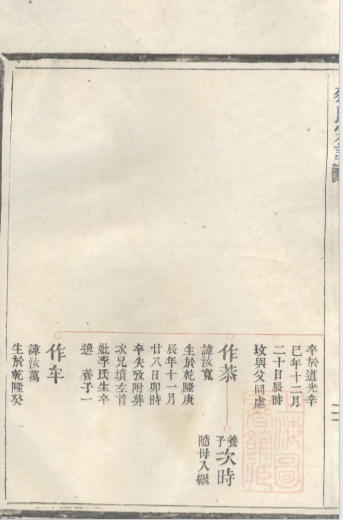 卒於道光辛
巳年十二月
二十日辰時
坟與父同處
養子 次時
隨母入繼
作恭
諱汝寬
生於乾隆庚
辰年十一月
廿八日卯時
卒失攷附葬
次兄墳左首
妣李氏生卒
養子一
諱汝萬
生於乾隆癸